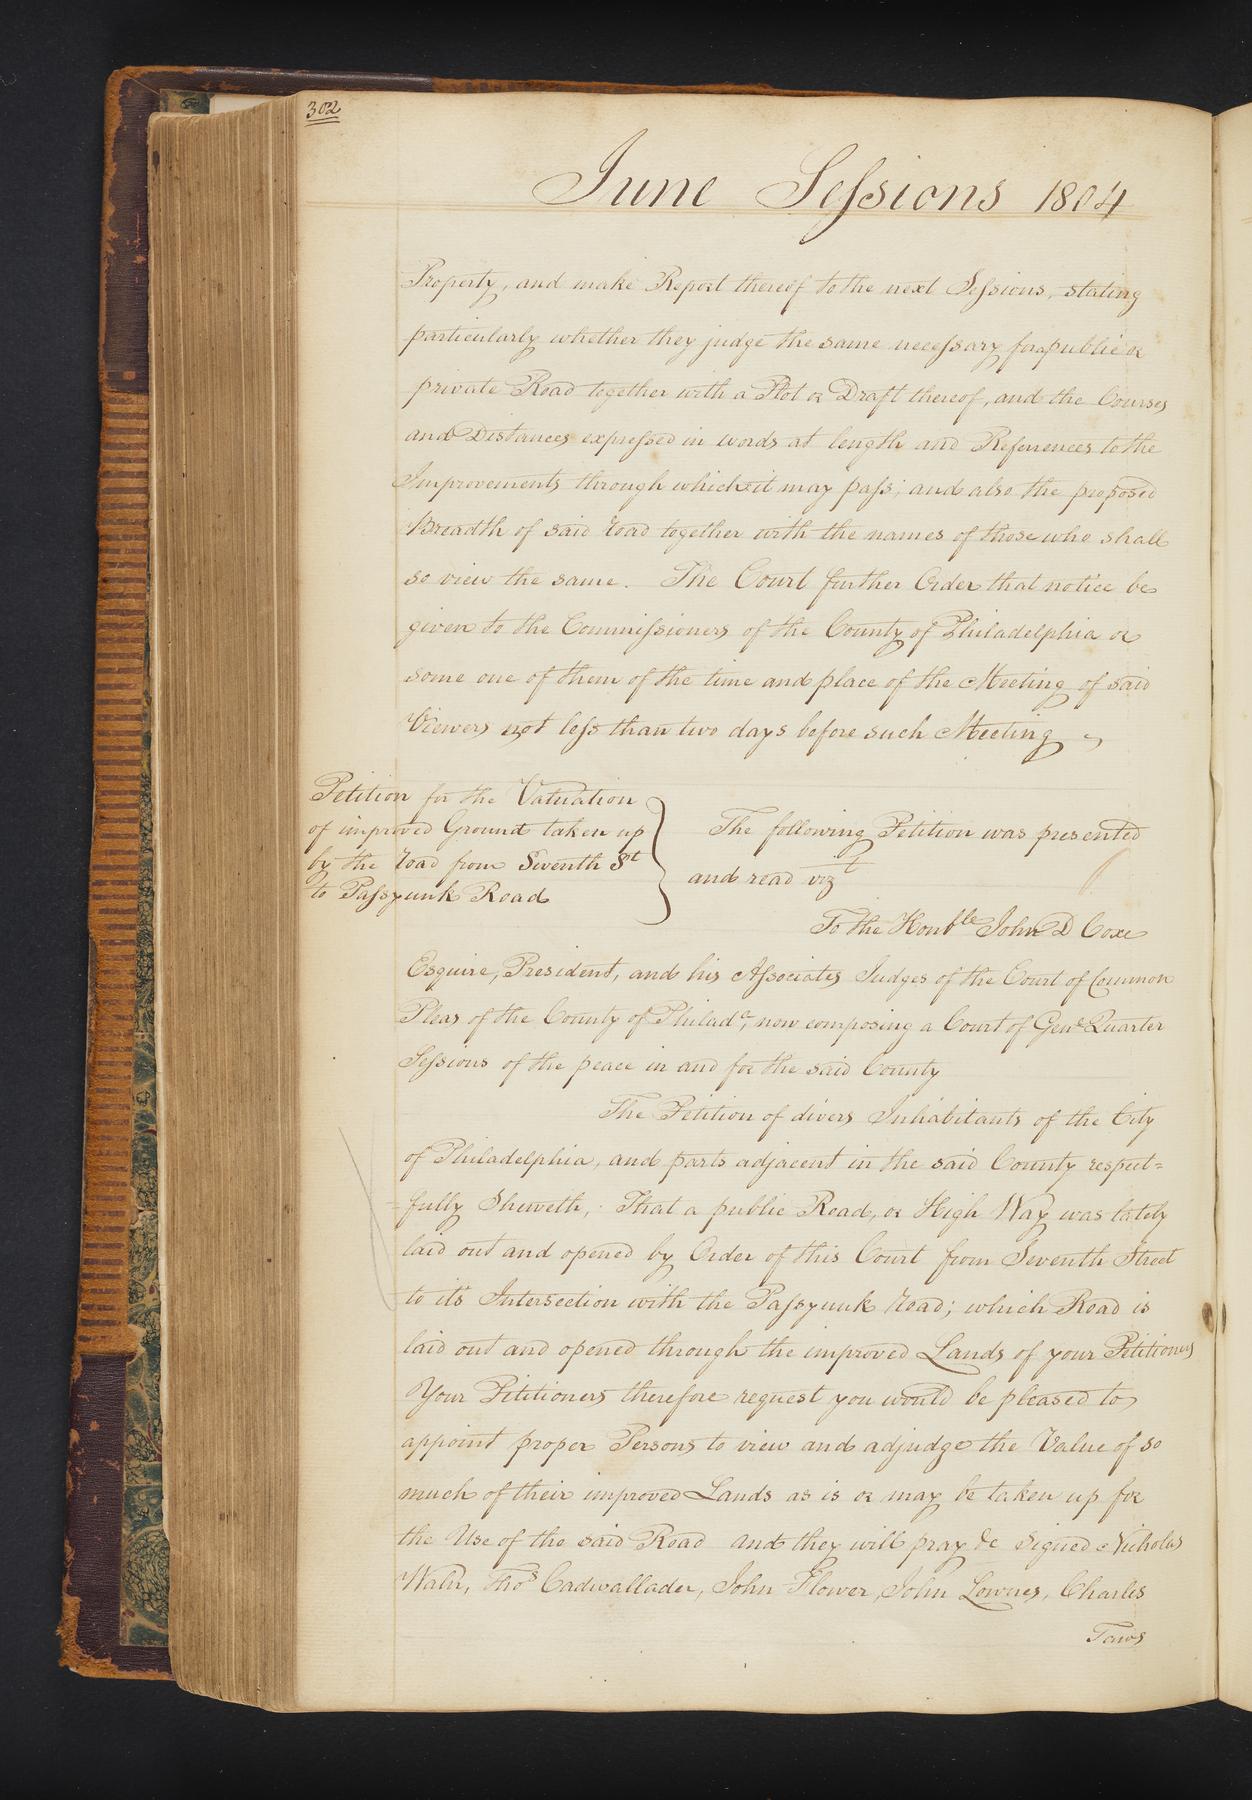 302
June Sessions 1804
Property, and make Report thereof to the next Sessions, stating
particularly whether they judge the same necessary for a public or
private Road together with a Plot or Draft thereof, and the Courses
and Distances expressed in words at length and References to the
Improvements through which it may pass; and also the proposed
Breadth of said road together with the names of those who shall
so view the same. The Court further Order that notice be
given to the Commissioners of the County of Philadelphia or
some one of them of the time and place of the Meeting of said
Viewers not less than two days before such Meeting
Petition for the Valuation
of improved Ground taken up
by the road from Seventh St
to Passyunk Road
The following Petition was presented
and read vizt
To the Honble John D Coxe
Esquire, President, and his Associates Judges of the Court of Common
Pleas of the County of Philada, now composing a Court of Genl Quarter
Sessions of the peace in and for the said County
The Petition of divers Inhabitants of the City
of Philadelphia, and parts adjacent in the said County respect=
fully Sheweth, That a public Road, or High Way was lately
laid out and opened by Order of this Court from Seventh Street
to its Intersection with the Passyunk road; which Road is
laid out and opened through the improved Lands of your Petitioners
Your Petitioners therefore request you would be pleased to
appoint proper Persons to view and adjudge the Value of so
much of their improved Lands as is or may be taken up for
the Use of the said Road and they will pray &c Signed Nicholas
Waln, Thos Cadwallader, John Flower, John Lownes, Charles
Taws